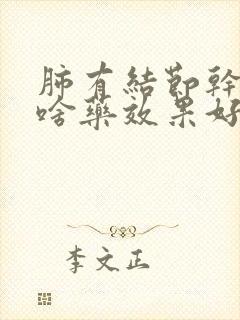 肺有結節幹
啥藥效果好
李文正